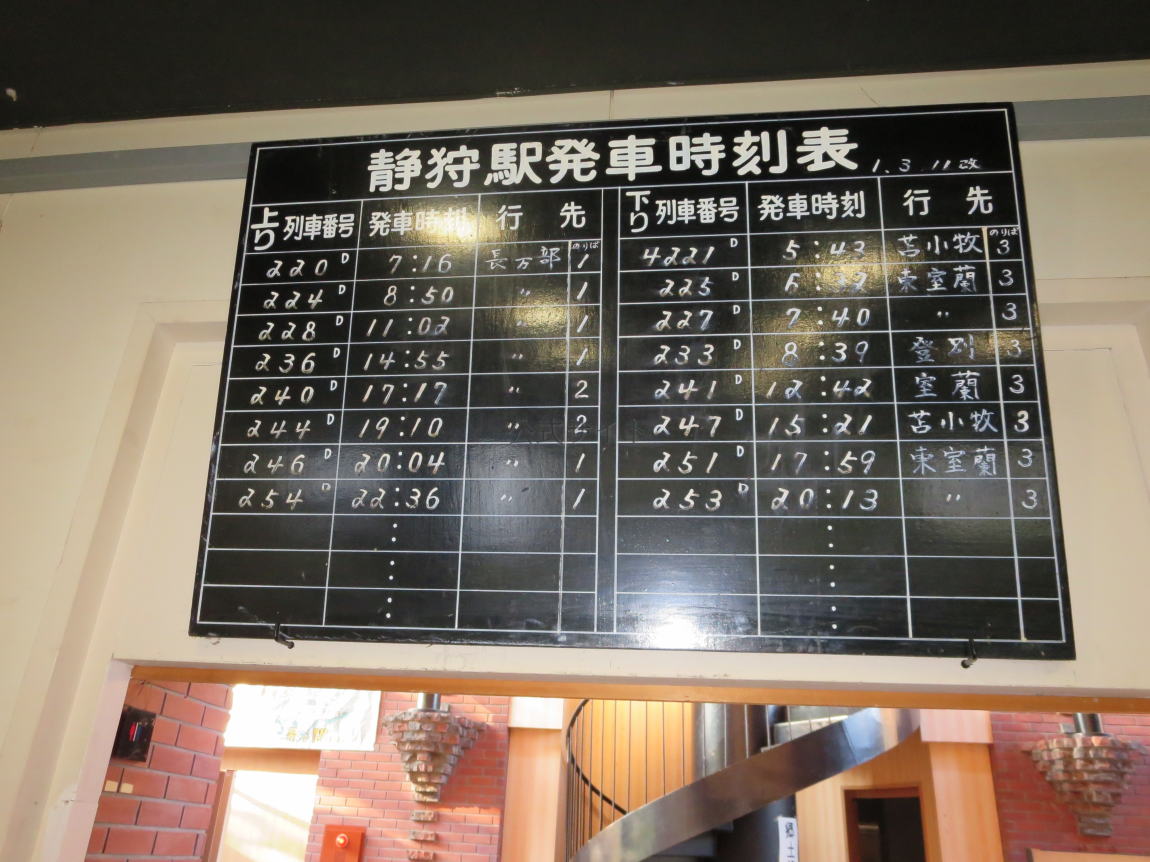 静狩駅発車時刻表 1.3.11改
上り 列車番号 発車時刻 行先 のりば
220D 7:16 長万部 1
224D 8:50 〃 1
228D 11:02 〃 1
236D 14:55 〃 1
240D 17:17 〃 2
244D 19:10 〃 2
246D 20:04 〃 1
254D 22:36 〃 1
下り 列車番号 発車時刻 行先 のりば
4221D 5:43 苫小牧 3
225D 東室蘭 3
227D 7:40 〃 3
233D 8:39 登別 3
241D 12:42 室蘭 3
247D 15:21 苫小牧 3
251D 17:59 東室蘭 3
253D 20:13 〃 3